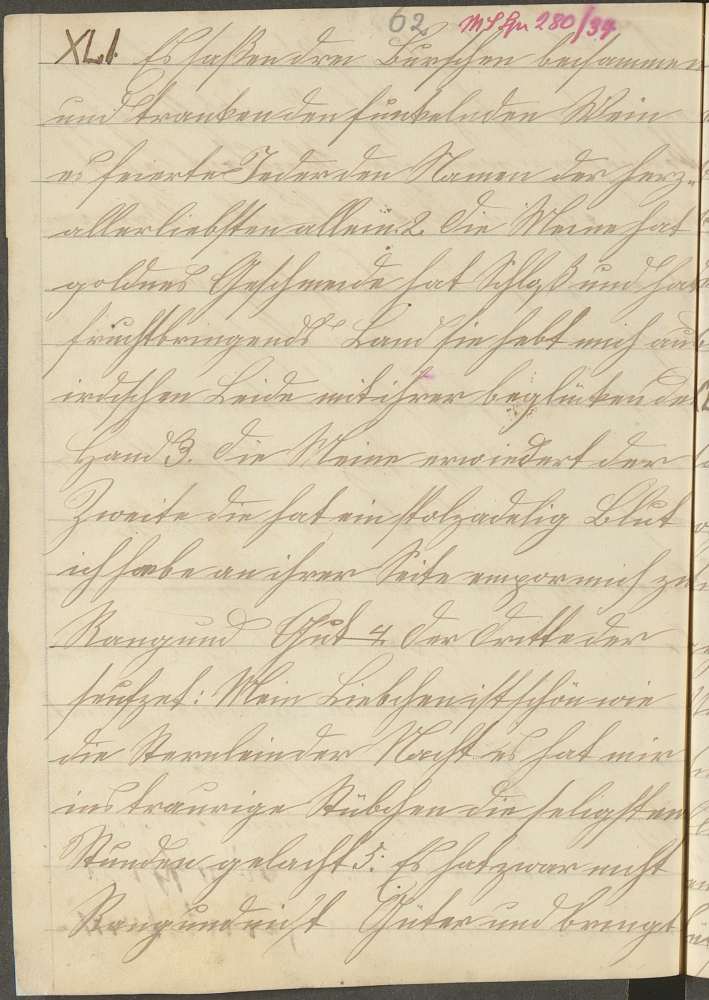 62 MS Hu 280/34
XLI. Es saßen drei Burschen beisammen
und tranken den funkelnden Wein
es feierte Jeder den Namen der Herz-
allerliebsten allein. 2. Die Meine hat
goldnes Geschmeide hat Schloß und hat
fruchtbringends Land sie hebt mich aus
irdischen Leide mit ihrer beglückenden
Hand 3. Die Meine erwiedert der
Zweite die hat ein stolzadelig Blut
ich habe an ihrer Seite empor mich zu
Rang und Gut 4. Der Dritte der
seufzet: Mein Liebchen ist schön wie
die Sternlein der Nacht es hat mir
ins traurige Stübchen die seligsten
Stunden gelacht 5. Es hat zwar nicht
Rang und nicht Güter und bringt